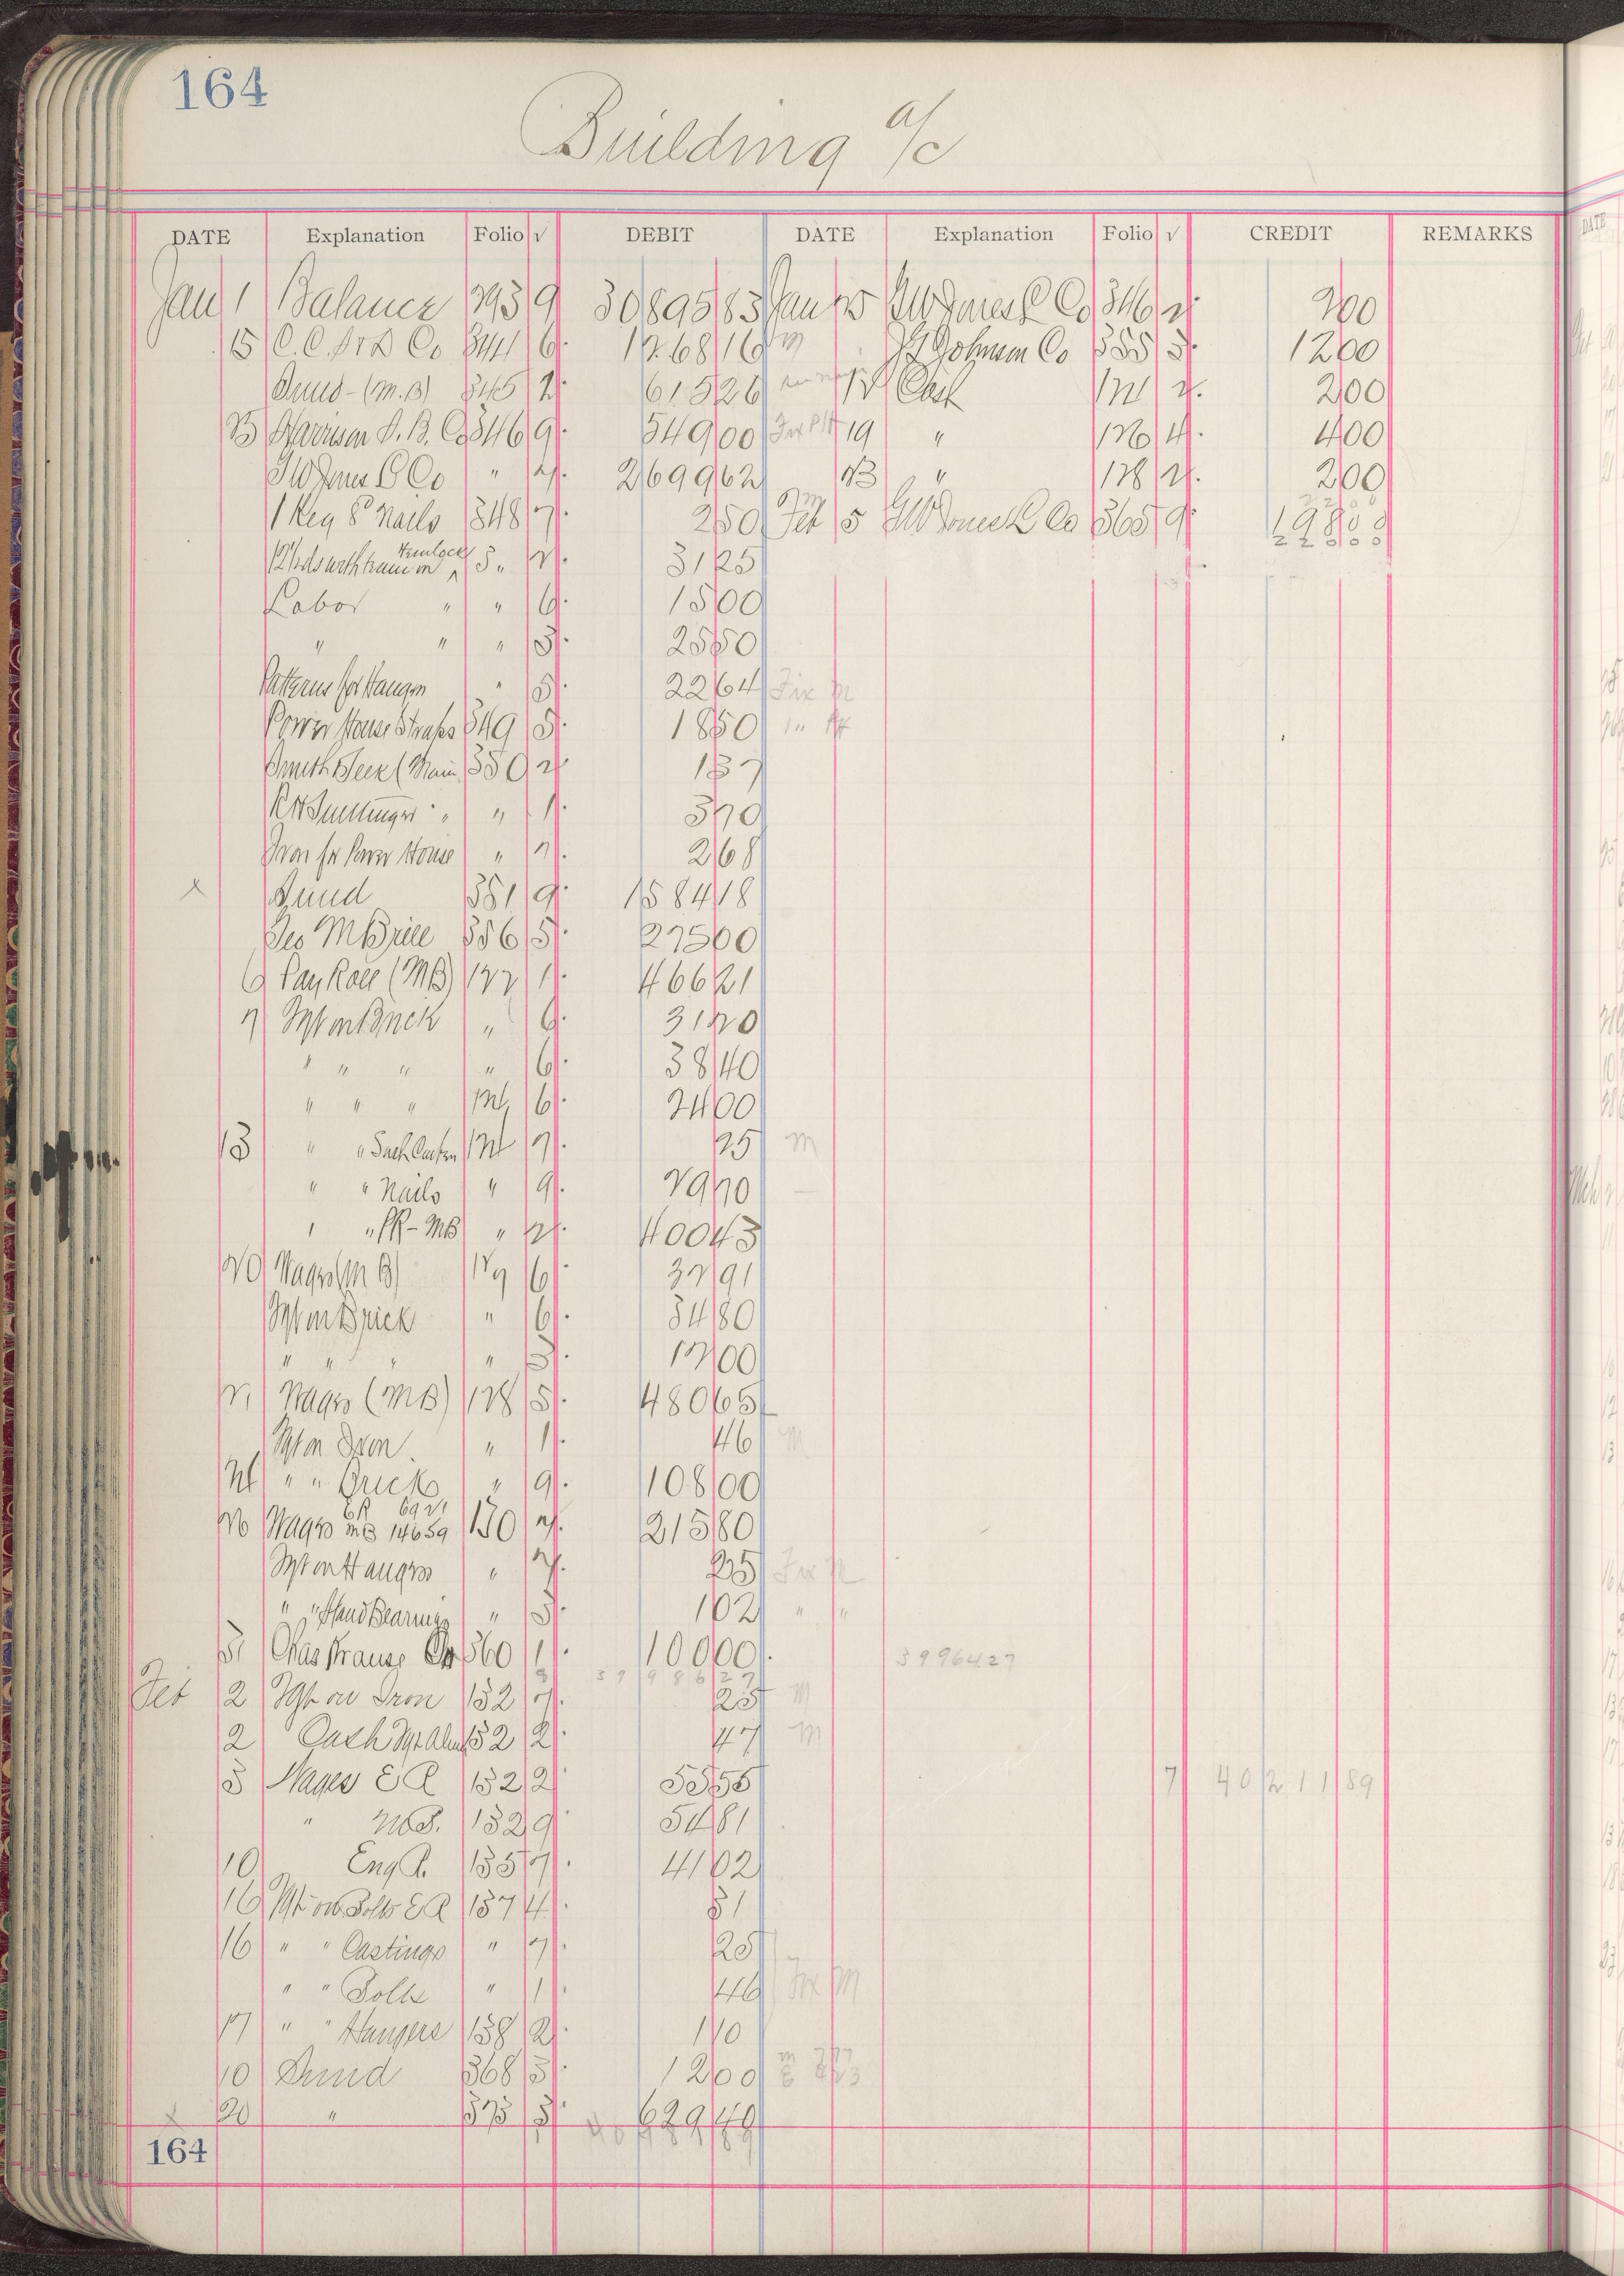 164
Building a/c
DATE Explanation Folio √ DEBIT DATE Explanation Folio √ CREDIT REMARKS
Jan 1 Balance 293 9 30895 83 Jan 25 GW Jones L Co 346 2 2 00
15 C.C. Co 344 6 1268 16 m JG Johnson Co 355 3 12 00
Sund - (M.B) 345 2 615 26 12 Cash 121 2 2 00
25 Harrison Co 346 9 549 00 Fix PH 19 " 126 4 4 00
GW Jones L Co " 2 2699 62 23 " 128 2 2 00
1 Keg 8d Nails 348 7 2 50 Feb m 5 GW Jones L Co 365 9 198 00
Hemlock
3 " 2 31 25 22 00
Labor " " 6 15 00
" " " 3 25 50
Patterns for Hangers " 5 22 64 Fix M
Power House Straps 349 5 18 50 " PH
Smith (Main 350 2 1 37
" " 1 3 70
Iron for Power House " 7 2 68
x Sund 351 9 1584 18
Geo M Brill 356 5 275 00
6 Pay Roll (MB) 122 1 466 21
7 Frt on Brick " 6 31 20
" " " " 6 38 40
" " " 124 6 24 00
13 " " 124 7 25 m
" " Nails " 9 29 70
" " PR - MB " 2 400 43
20 Wages (M B) 127 6 32 91
Frt on Brick " 6 34 80
" " " " 3 12 00
21 Wages (MB) 128 5 480 65
Frt on Iron " 1 46 m
24 " " Brick " 9 108 00
26 Wages ER 6921 MB 14659 130 2 215 80
Frt on Hangers " 7 25 Fix M
" " Stand Bearings " 3 1 02 " "
31 Chas Krause Co 360 1 100 00 39964.27
39986 27
Feb 2 Frt on Iron 132 7 25 m
2 Cash Frt 132 2 47 m
3 Wages E R 132 2 55 55 7 40211 89
" M.B. 132 9 54 81
10 Eng R. 135 7 41 02
16 Frt on Bolts E R 137 4 31
16 " " Castings " 7 25
" " Bolts " 1 46 Fix M
17 " " Hangers 138 2 1 10
10 Sund 368 3 12 00 m 777 E 423
x 20 " 373 3 629 40
164